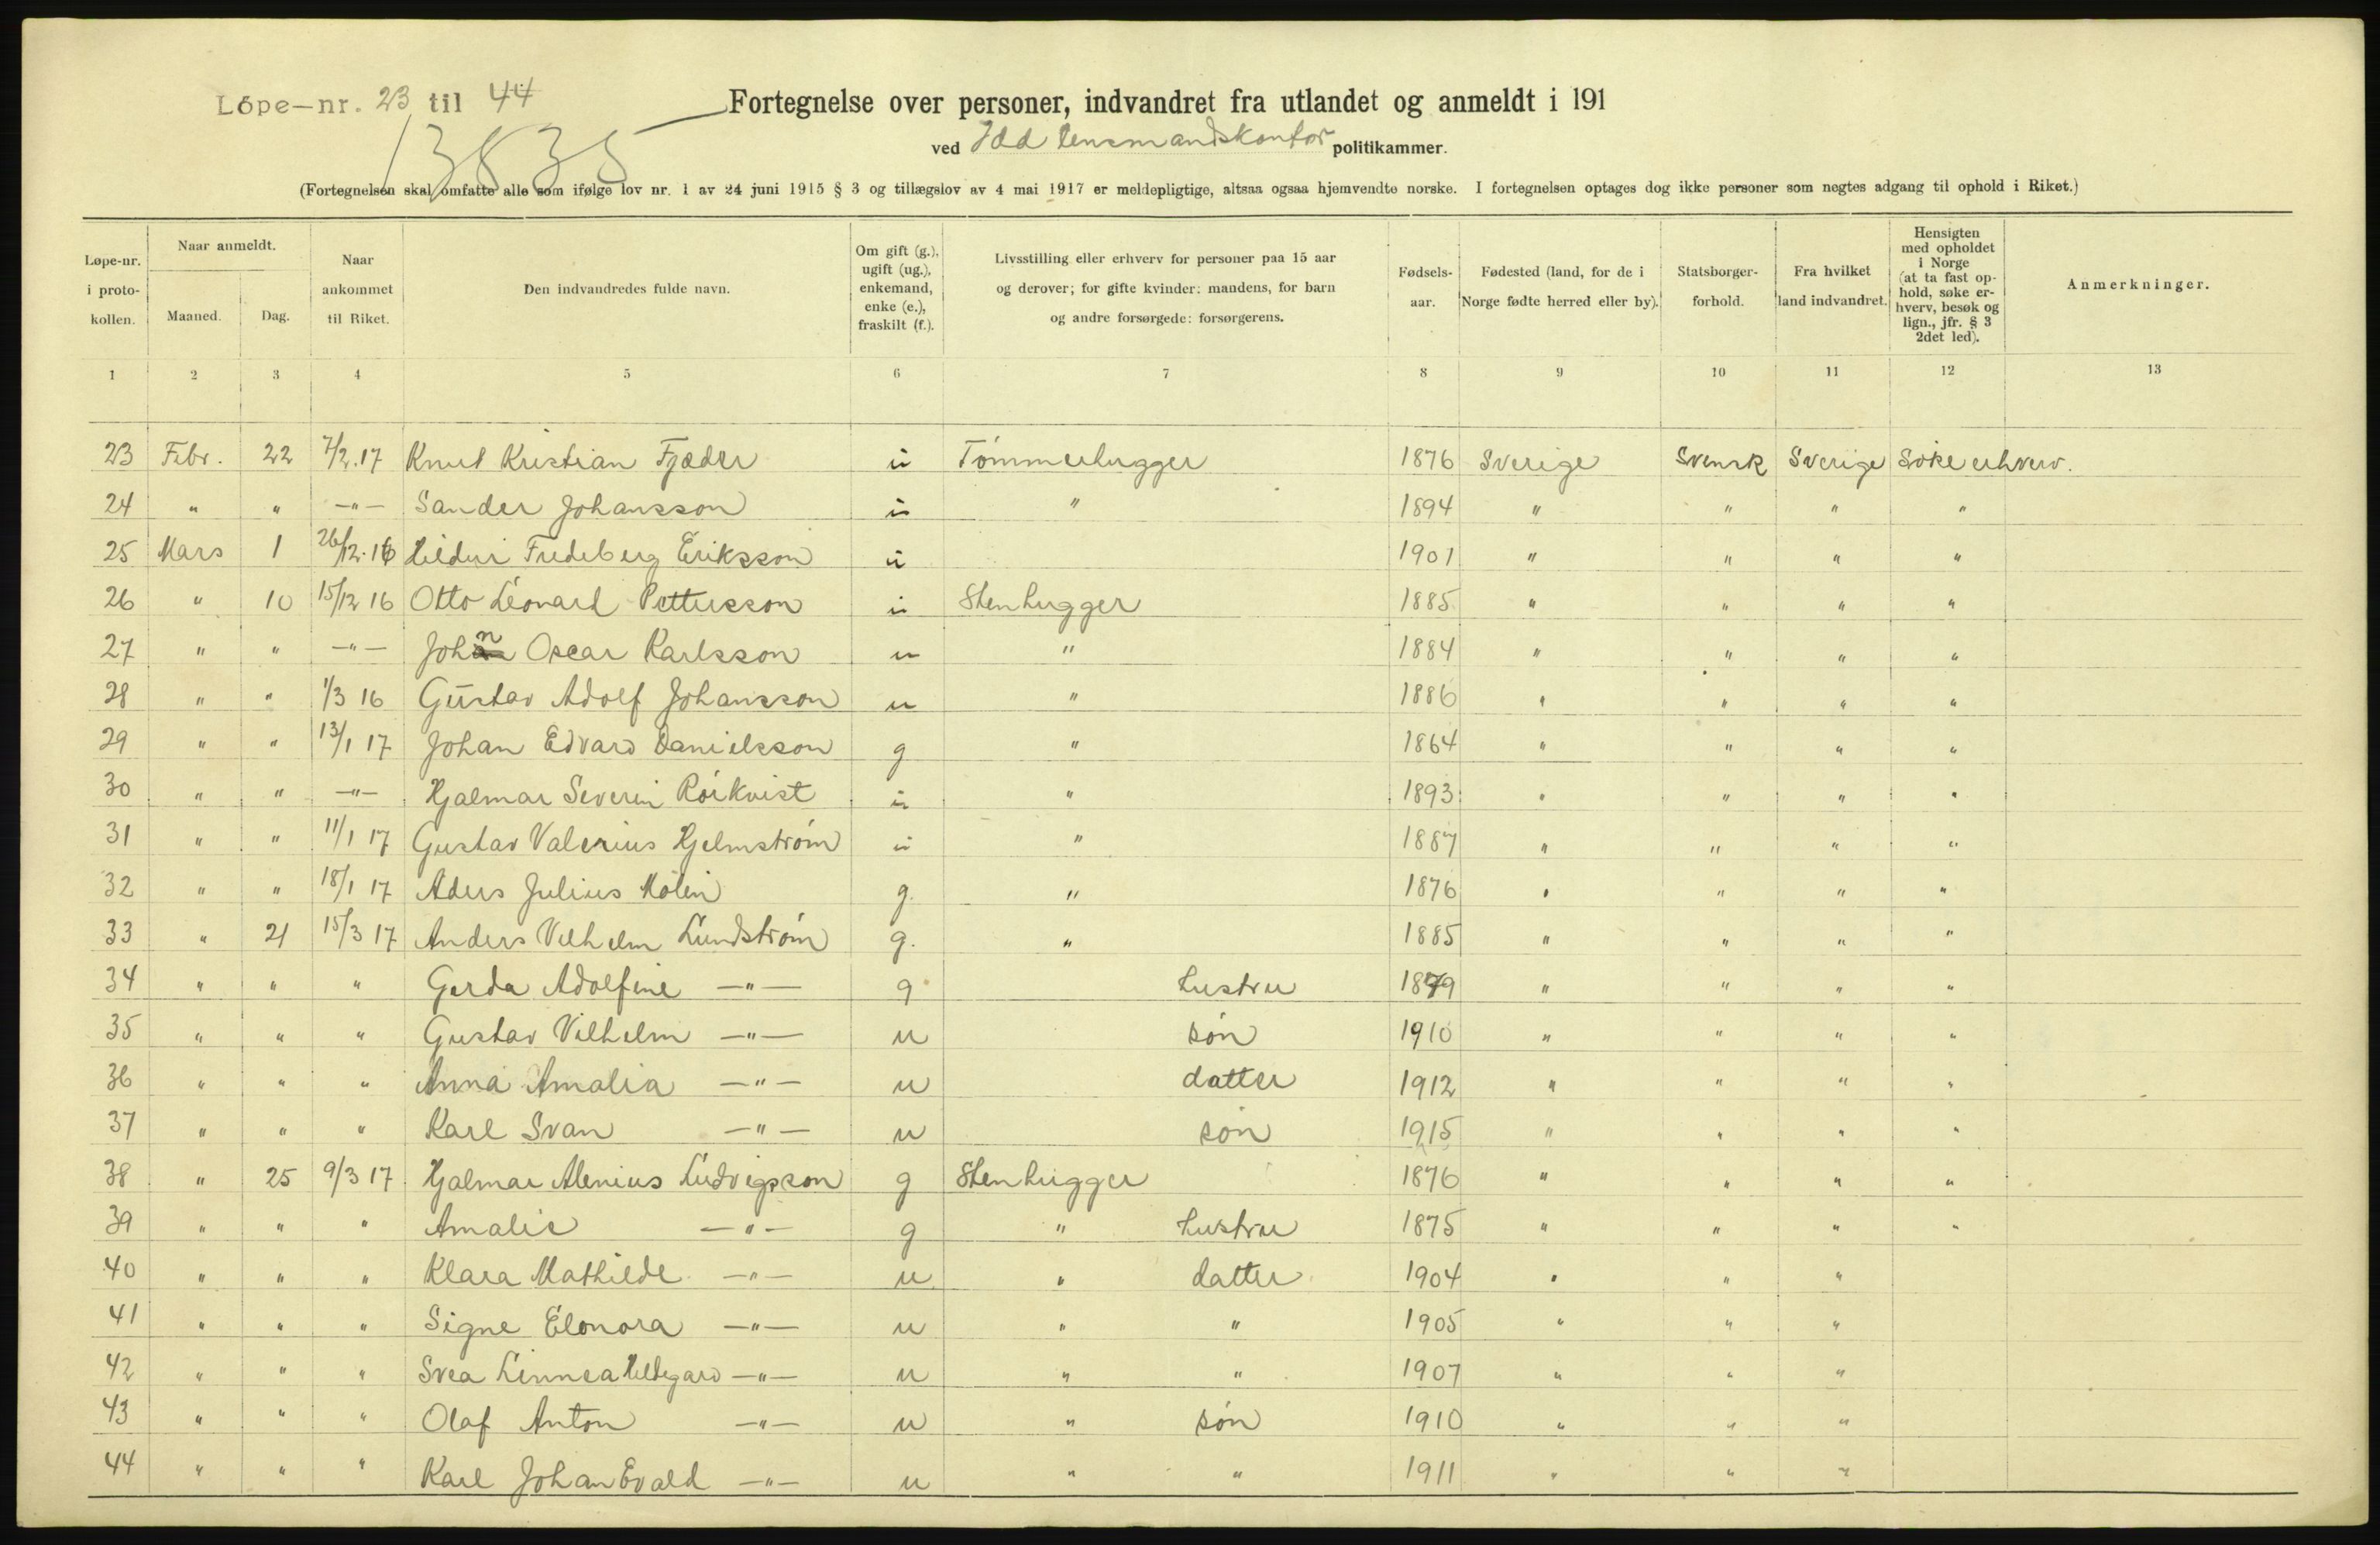 Löpe-nr. 23 til 44
Fortegnelse over personer, indvandret fra utlandet og anmeldt i 191
13835
ved Idd lensmandskontor politikammer.
(Fortegnelsen skal omfatte alle som ifølge lov nr. 1 av 24 juni 1915 § 3 og tillægslov av 4 mai 1917 er meldepligtige, altsaa ogsaa hjemvendte norske. I fortegnelsen optages dog ikke personer som negtes adgang til ophold i Riket.)
Løpe-nr. i proto-kollen. Naar anmeldt. Maaned. Dag. Naar ankommet til Riket. Den indvandredes fulde navn. Om gift (g.), ugift (ug.), enkemand, enke (e.), fraskilt (f.). Livsstilling eller erhverv for personer paa 15 aar og derover; for gifte kvinder: mandens, for barn og andre forsørgede: forsørgerens. Fødsels-aar. Fødested (land, for de i Norge fødte herred eller by). Statsborger-forhold. Fra hvilket land indvandret. Hensigten med opholdet i Norge (at ta fast op-hold, søke er-hverv, besøk og lign., jfr. § 3 2det led). Anmerkninger.
1 2 3 4 5 6 7 8 9 10 11 12 13
23 Febr. 22 7/2.17 Knut Kristian Fjæder u Tömmerhugger 1876 Sverige Svensk Sverige Söke erhverv.
24 " " —"— Sander Johansson u " 1894 " " " "
25 Mars 1 26/12.16 Fredeberg Eriksson u 1901 " " " "
26 " 10 15/12 16 Otto Leonard Pettersson u Stenhugger 1885 " " " "
27 " " —"— John Oscar Karlsson u " 1884 " " " "
28 " " 1/3 16 Gustav Adolf Johansson u " 1886 " " " "
29 " " 13/1 17 Johan Edvard Danielsson g " 1864 " " " "
30 " " —"— Hjalmar Severin Rörkvist u " 1893 " " " "
31 " " 11/1 17 Gustav Valerius Hjelmström u " 1887 " " " "
32 " " 18/1 17 Aders Julius Molin g. " 1876 " " " "
33 " 21 15/3 17 Anders Vilhelm Lundström g. " 1885 " " " "
34 " " " Gerda Adolfine —"— g hustru 1879 " " " "
35 " " " Gustav Vilhelm —"— u sön 1910 " " " "
36 " " " Anna Amalia —"— u datter 1912 " " " "
37 " " " Karl Svan —"— u sön 1915 " " " "
38 " 25 9/3 17 Hjalmar Alenius Ludvigsson g Stenhugger 1876 " " " "
39 " " " Amalie —"— g " hustru 1875 " " " "
40 " " " Klara Mathilde —"— u " datter 1904 " " "
41 " " " Signe Elonora —"— u " " 1905 " " "
42 " " " Svea Linnea Hildegard —"— u " " 1907 " " "
43 " " " Olaf Anton —"— u " sön 1910 " " "
44 " " " Karl Johan Evald —"— u " " 1911 " " "